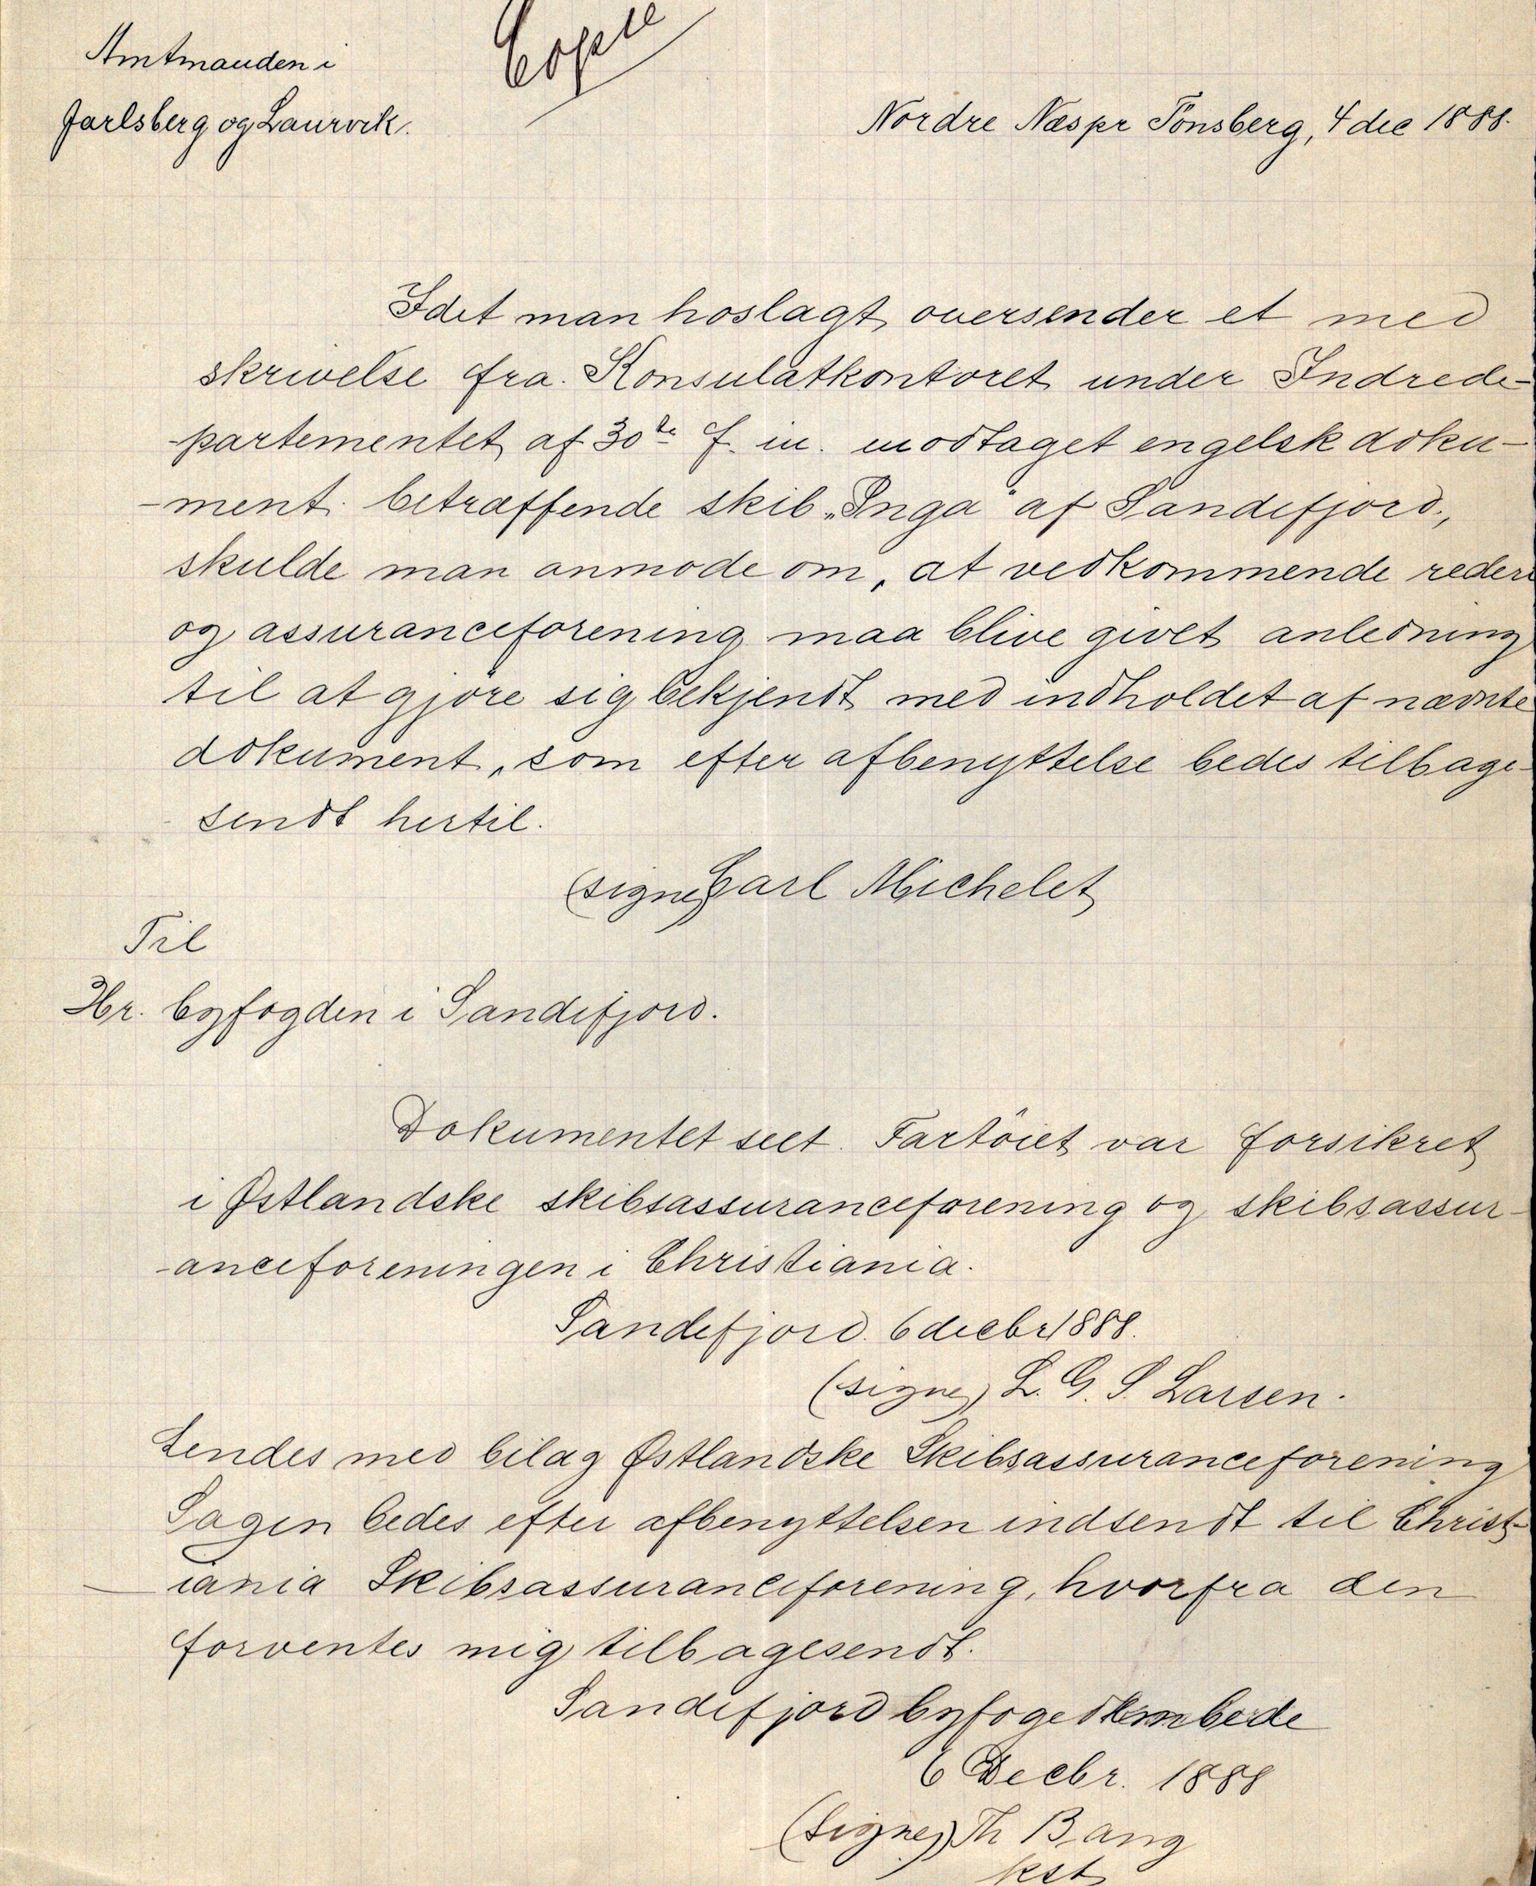 Copie
Amtmanden i
Jarlsberg og Laurvik.
Nordre Næs pr Tönsberg, 4 dec 1888.
Idet man hoslagt oversender et med
skrivelse fra Konsulatkontoret under Indrede-
-partementet af 30te f. m. modtaget engelsk doku-
-ment betræffende skib „Inga" af Sandefjord,
skulde man anmode om, at vedkommende rederi
og assuranceforening maa blive givet anledning
til at gjöre sig bekjendt med indholdet af nævnte
dokument, som efter afbenyttelse bedes tilbage-
sendt hertil.
(signe) Carl Michelet
Til
Hr. byfogden i Sandefjord.
Dokumentet seet. Fartöiet var forsikret
i Østlandske skibsassuranceforening og skibsassur-
-anceforeningen i Christiania.
Sandefjord 6 decbr 1888.
(signe) L. G. S. Larsen.
Sendes med bilag Østlandske Skibsassuranceforening
Sagen bedes efter afbenyttelsen indsendt til Christ-
iania Skibsassuranceforening, hvorfra den
forventes mig tilbagesendt.
Sandefjord byfogedembede
6 Decbr. 1888
(signe) Th Bang
kst